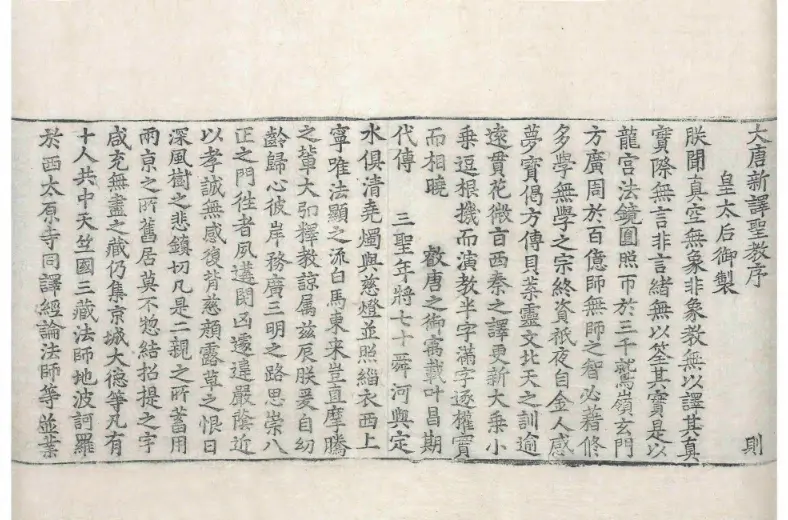 大唐新譯聖教序　則
皇太后御製
朕聞真空無象非象教無以譯其真
寳際無言非言緒無以筌其寳是以
龍宮法鏡圓照帀於三千鷲嶺玄門
方廣周於百億師無師之智必著修
多學無學之宗終資祇夜自金人感
夢寳偈方傳貝葉靈文北天之訓逾
遠貫花微旨西秦之譯更新大乗小
乗逗根機而演教半字滿字逐權寳
而相曉　叡唐之御㝢載叶昌期
代傳　三聖年將七十舜河與定
水俱清堯燭與慈燈並照緇衣西上
寧唯法顯之流白馬東来豈直摩騰
之輩大弘釋教諒属兹辰朕爰自幼
齡歸心彼岸務廣三明之路思崇八
正之門徃者夙遘閔凶遽違嚴蔭近
以孝誠無感復背慈顔露草之恨日
深風樹之悲鎮切凡是二親之所蓄用
兩京之所舊居莫不惣結招提之宇
咸充無盡之藏仍集京城大德等凡有
十人共中天竺國三藏法師地波訶羅
於西太原寺同譯經論法師等並業